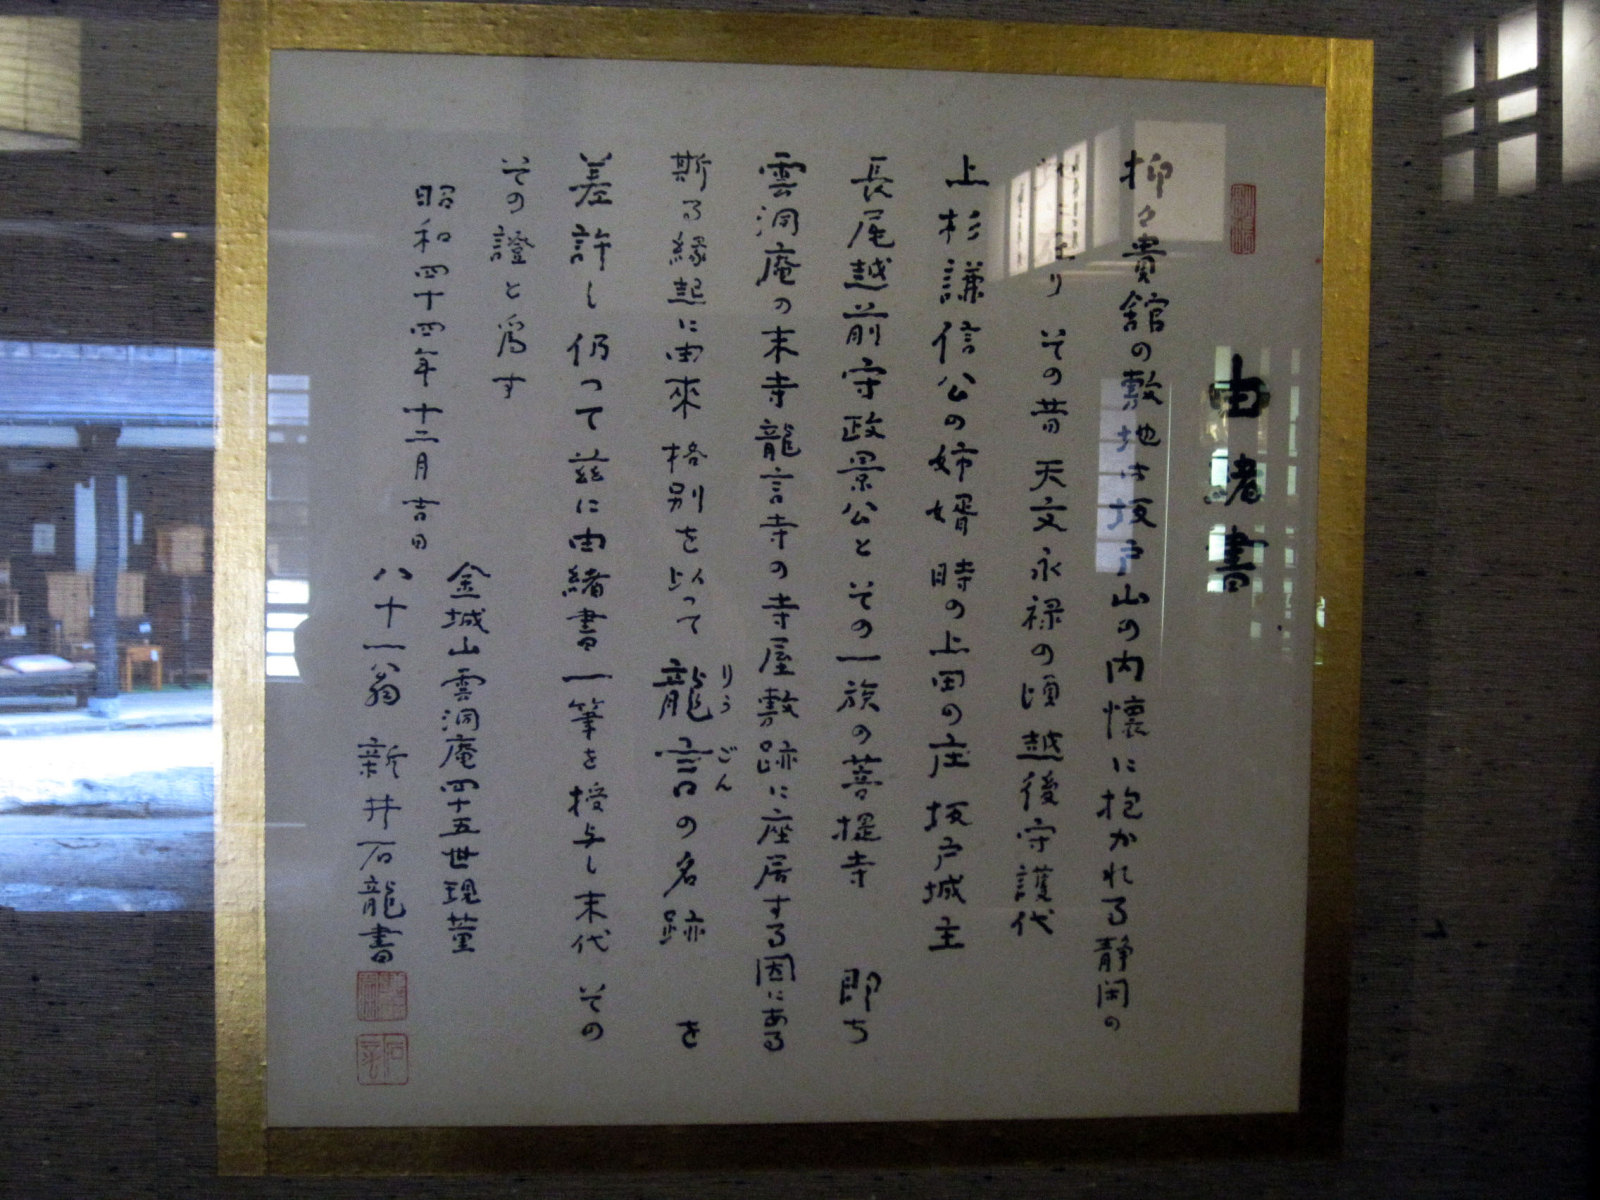 由緒書
抑々貴館の敷地は坂戸山の内懐に抱かれる静閑の
り その昔 天文永禄の頃越後守護代
上杉謙信公の姉婿 時の上田の庄 坂戸城主
長尾越前守政景公とその一族の菩提寺 即ち
雲洞庵の末寺龍言寺の寺屋敷跡に座居する因にある
斯る縁起に由來 格別を以って 龍言の名跡 を
りう ごん
差許し 仍って茲に由緒書一筆を授与し末代 その
その證と為す
昭和四十四年十二月吉日
金城山雲洞庵四十五世現董
八十一翁 新井石龍書